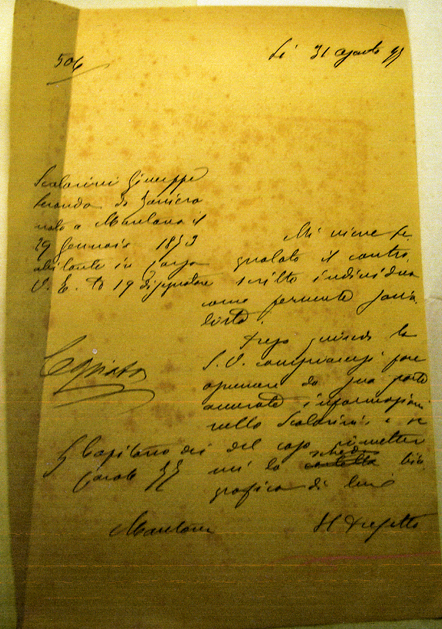 506
Li 31 agosto 97
Scalarini Giuseppe
secondo di Raniero
nato a Mantova il
29 Gennaio 1873
abitante in Corso
V. E. to 19 disegnatore
Mi viene se
gnalato il contro
scritto individuo
come fervente socia
lista.
Prego quindi la
S. V. compiacersi fare
assumere da sua parte
accurate informazioni
sullo Scalarini e se
del caso rimetter
mi la scheda bio
grafica di lui
Copiata
Capitano dei
Carab. RR
Mantova
Il Prefetto